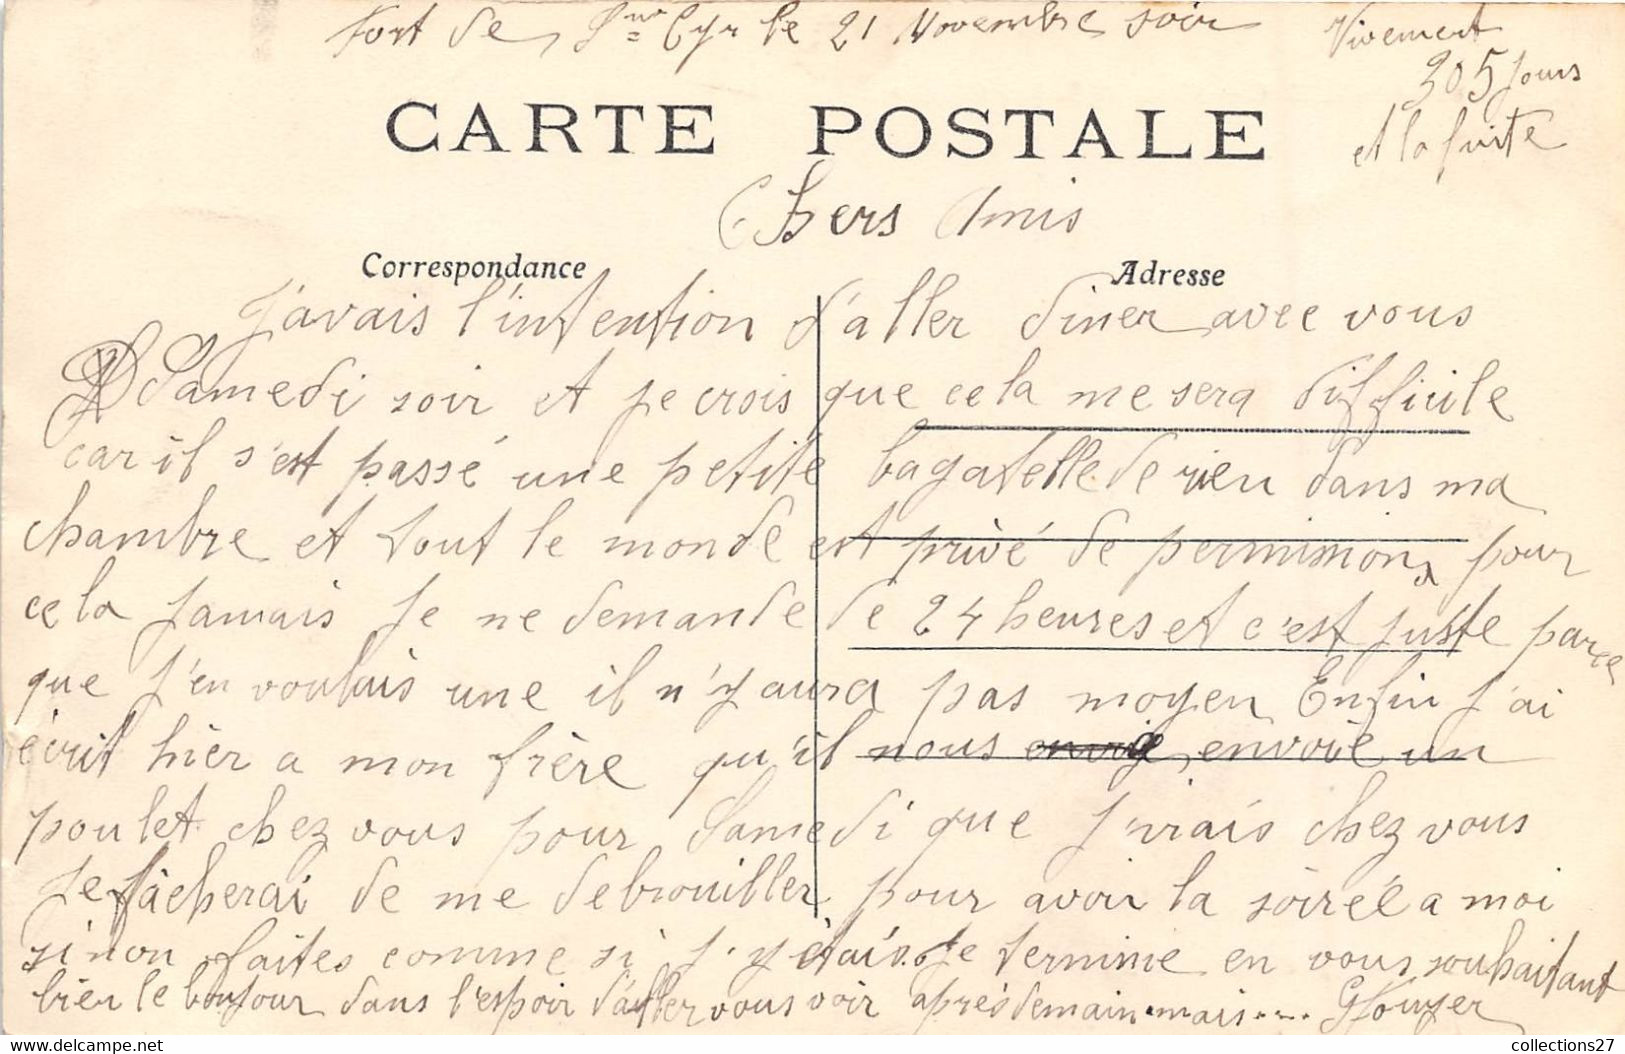 Fort de St Cyr le 21 Novembre soir
Vivement
305 jours
et la fuite
CARTE POSTALE
Chers Amis
Correspondance
Adresse
J'avais l'intention d'aller diner avec vous
Samedi soir et je crois que cela me sera difficile
car il s'est passé une petite bagatelle de rien dans ma
chambre et tout le monde est privé de permission, pour
cela jamais je ne demande de 24 heures et c'est juste parce
que j'en voulais une il n'y aura pas moyen Enfin j'ai
écrit hièr a mon frère qu'il nous envoie un
poulet chez vous pour Samedi que j'irais chez vous
je fâcherai de me debrouiller pour avoir la soireé a moi
si non faites comme si j'y étais. Je termine en vous souhaitant
bien le bonjour dans l'espoir d'aller vous voir après demain. mais....
collections27